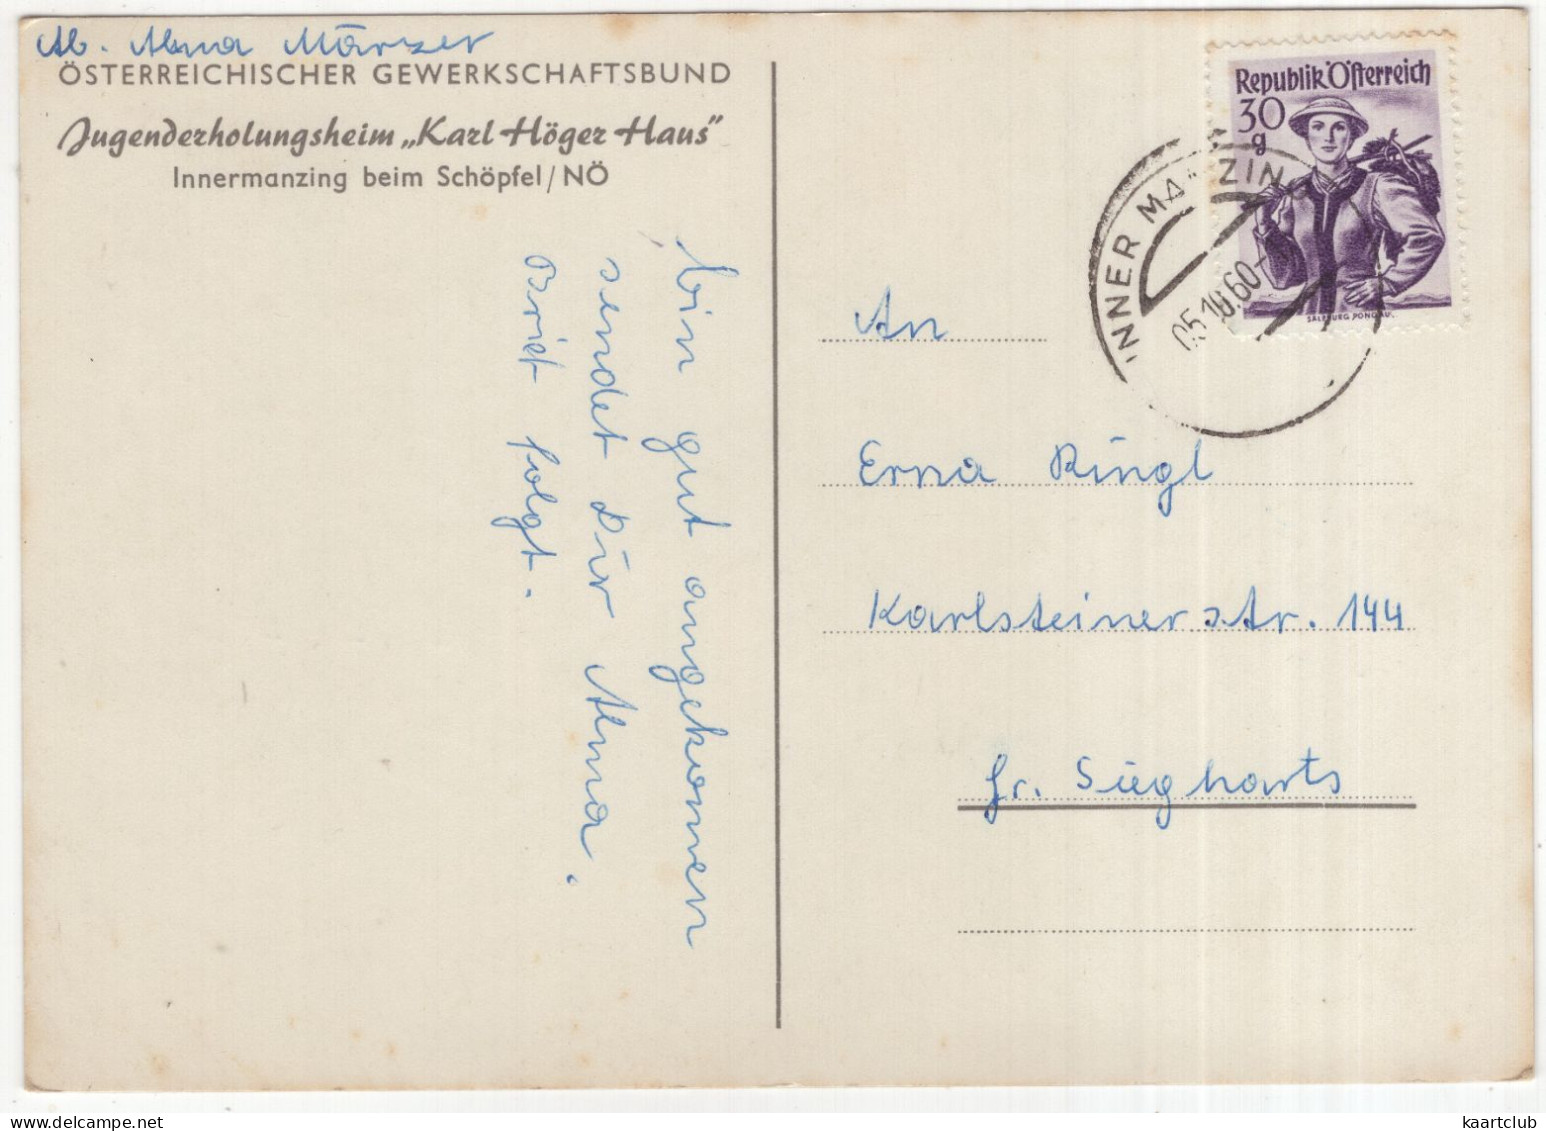 Ab. Alma Märzer
ÖSTERREICHISCHER GEWERKSCHAFTSBUND
Jugenderholungsheim „Karl Höger Haus"
Innermanzing beim Schöpfel/NÖ
bin gut angekommen
sendet Dir Alma.
Brief folgt.
Republik Österreich
30
g
SALZBURG, PONGAU.
INNER MANZING
05.10.60
An
Erna Ringl
Karlsteinerstr. 144
Gr. Siegharts
kaartclub